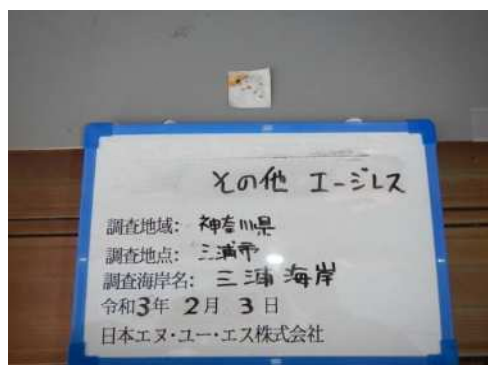 その他 エージレス
調査地域: 神奈川県
調査地点: 三浦市
調査海岸名: 三浦海岸
令和3年 2月 3日
日本エヌ・ユー・エス株式会社